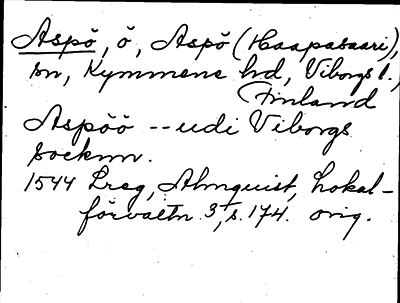 Aspö, ö, Aspö (Haapasaari),
sn, Kymmene hd, Viborgs l.,
Finland
Aspöö -- udi Viborgs
socknn.
1544 Lreg, Almquist, Lokal-
förvaltn. 3, s. 174. orig.